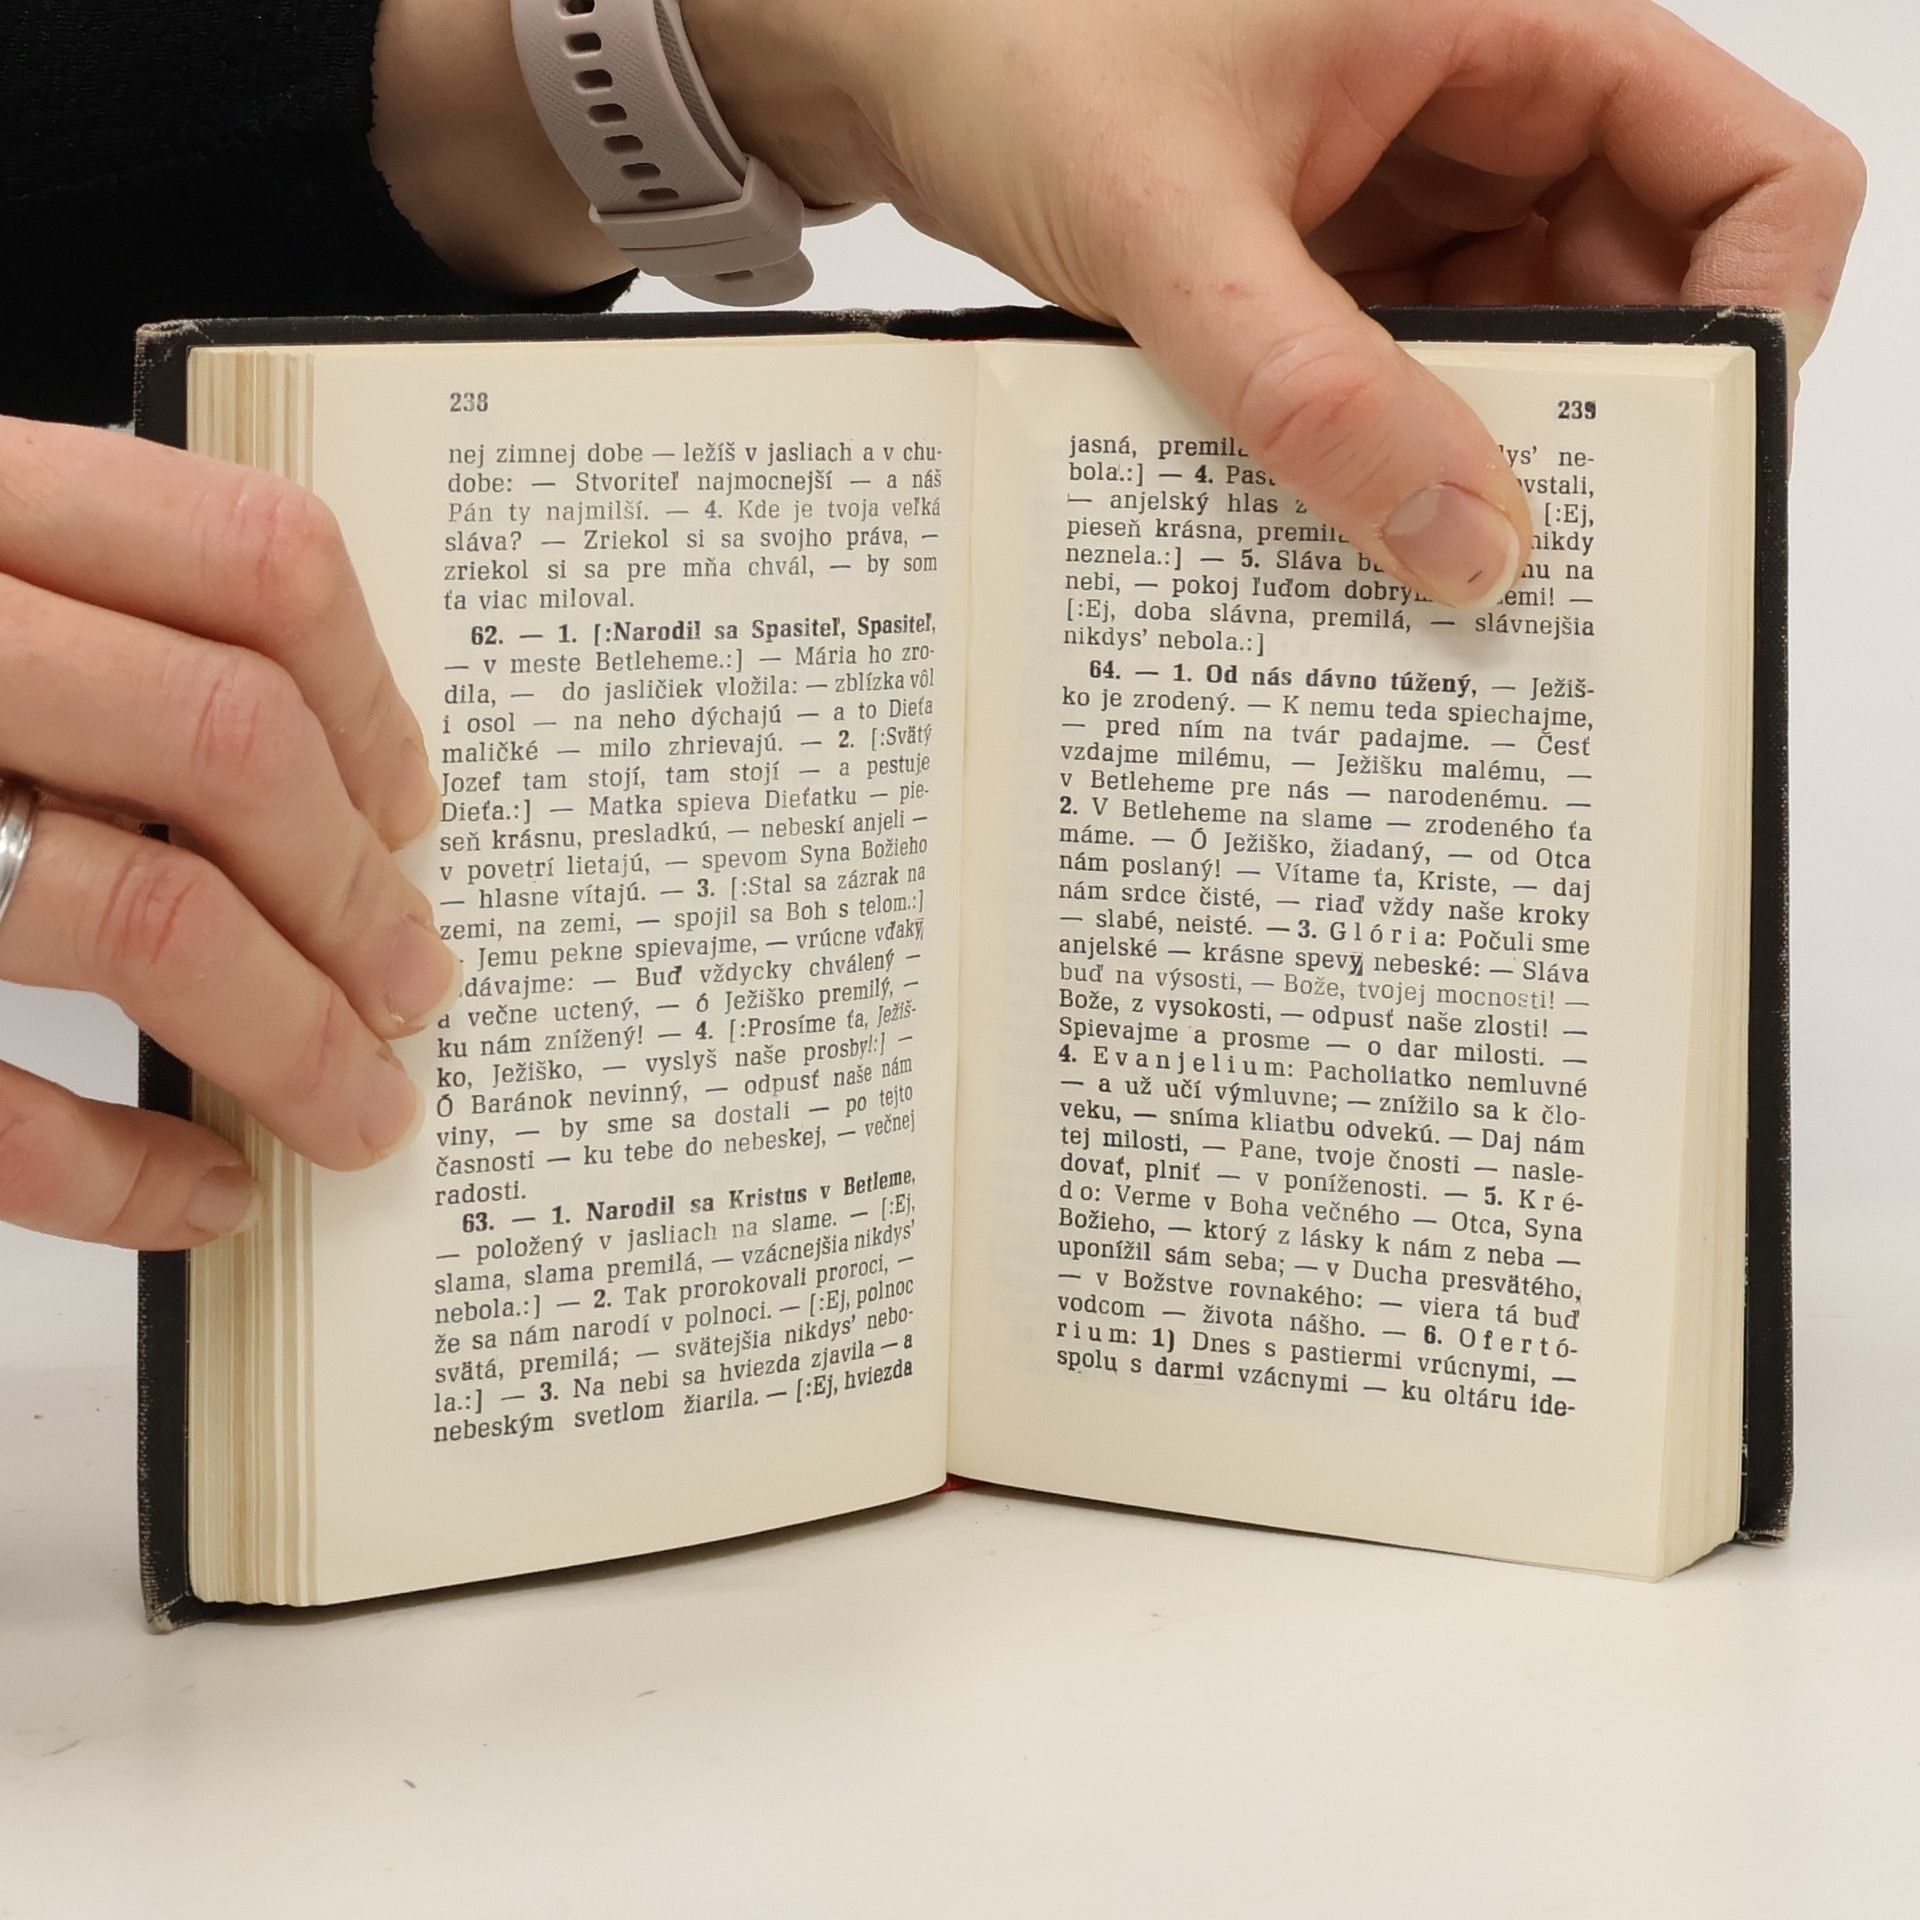 238
nej zimnej dobe — ležíš v jasliach a v chu-
dobe: — Stvoriteľ najmocnejší — a náš
Pán ty najmilší. — 4. Kde je tvoja veľká
sláva? — Zriekol si sa svojho práva, —
zriekol si sa pre mňa chvál, — by som
ťa viac miloval.
62. — 1. [:Narodil sa Spasiteľ, Spasiteľ,
— v meste Betleheme.:] — Mária ho zro-
dila, — do jasličiek vložila: — zblízka vôl
i osol — na neho dýchajú — a to Dieťa
maličké — milo zhrievajú. — 2. [:Svätý
Jozef tam stojí, tam stojí — a pestuje
Dieťa.:] — Matka spieva Dieťatku — pie-
seň krásnu, presladkú, — nebeskí anjeli —
v povetrí lietajú, — spevom Syna Božieho
— hlasne vítajú. — 3. [:Stal sa zázrak na
zemi, na zemi, — spojil sa Boh s telom.:]
Jemu pekne spievajme, — vrúcne vďaky
dávajme: — Buď vždycky chválený —
a večne uctený, — ó Ježiško premilý, —
ku nám znížený! — 4. [:Prosíme ťa, Ježiš-
ko, Ježiško, — vyslyš naše prosby!:] —
Ó Baránok nevinný, — odpusť naše nám
viny, — by sme sa dostali — po tejto
časnosti — ku tebe do nebeskej, — večnej
radosti.
63. — 1. Narodil sa Kristus v Betleme,
— položený v jasliach na slame. — [:Ej,
slama, slama premilá, — vzácnejšia nikdys’
nebola.:] — 2. Tak prorokovali proroci, —
že sa nám narodí v polnoci. — [:Ej, polnoc
svätá, premilá; — svätejšia nikdys’ nebo-
la.:] — 3. Na nebi sa hviezda zjavila — a
nebeským svetlom žiarila. — [:Ej, hviezda
239
jasná, ne-
bola.:] — 4.
— anjelský hlas [:Ej,
pieseň krásna, nikdy
neznela.:] — 5. Sláva na
nebi, — pokoj ľuďom —
[:Ej, doba slávna, premilá, — slávnejšia
nikdys’ nebola.:]
64. — 1. Od nás dávno túžený, — Ježiš-
ko je zrodený. — K nemu teda spiechajme,
— pred ním na tvár padajme. — Česť
vzdajme milému, — Ježišku malému, —
v Betleheme pre nás — narodenému. —
2. V Betleheme na slame — zrodeného ťa
máme. — Ó Ježiško, žiadaný, — od Otca
nám poslaný! — Vítame ťa, Kriste, — daj
nám srdce čisté, — riaď vždy naše kroky
— slabé, neisté. — 3. Glória: Počuli sme
anjelské — krásne spevy nebeské: — Sláva
buď na výsosti, — Bože, tvojej mocnosti! —
Bože, z vysokosti, — odpusť naše zlosti! —
Spievajme a prosme — o dar milosti. —
4. Evanjelium: Pacholiatko nemluvné
— a už učí výmluvne; — znížilo sa k člo-
veku, — sníma kliatbu odvekú. — Daj nám
tej milosti, — Pane, tvoje čnosti — nasle-
dovať, plniť — v poníženosti. — 5. Kré-
do: Verme v Boha večného — Otca, Syna
Božieho, — ktorý z lásky k nám z neba —
uponížil sám seba; — v Ducha presvätého,
— v Božstve rovnakého: — viera tá buď
vodcom — života nášho. — 6. Ofertó-
rium: 1) Dnes s pastiermi vrúcnymi, —
spolu s darmi vzácnymi — ku oltáru ide-